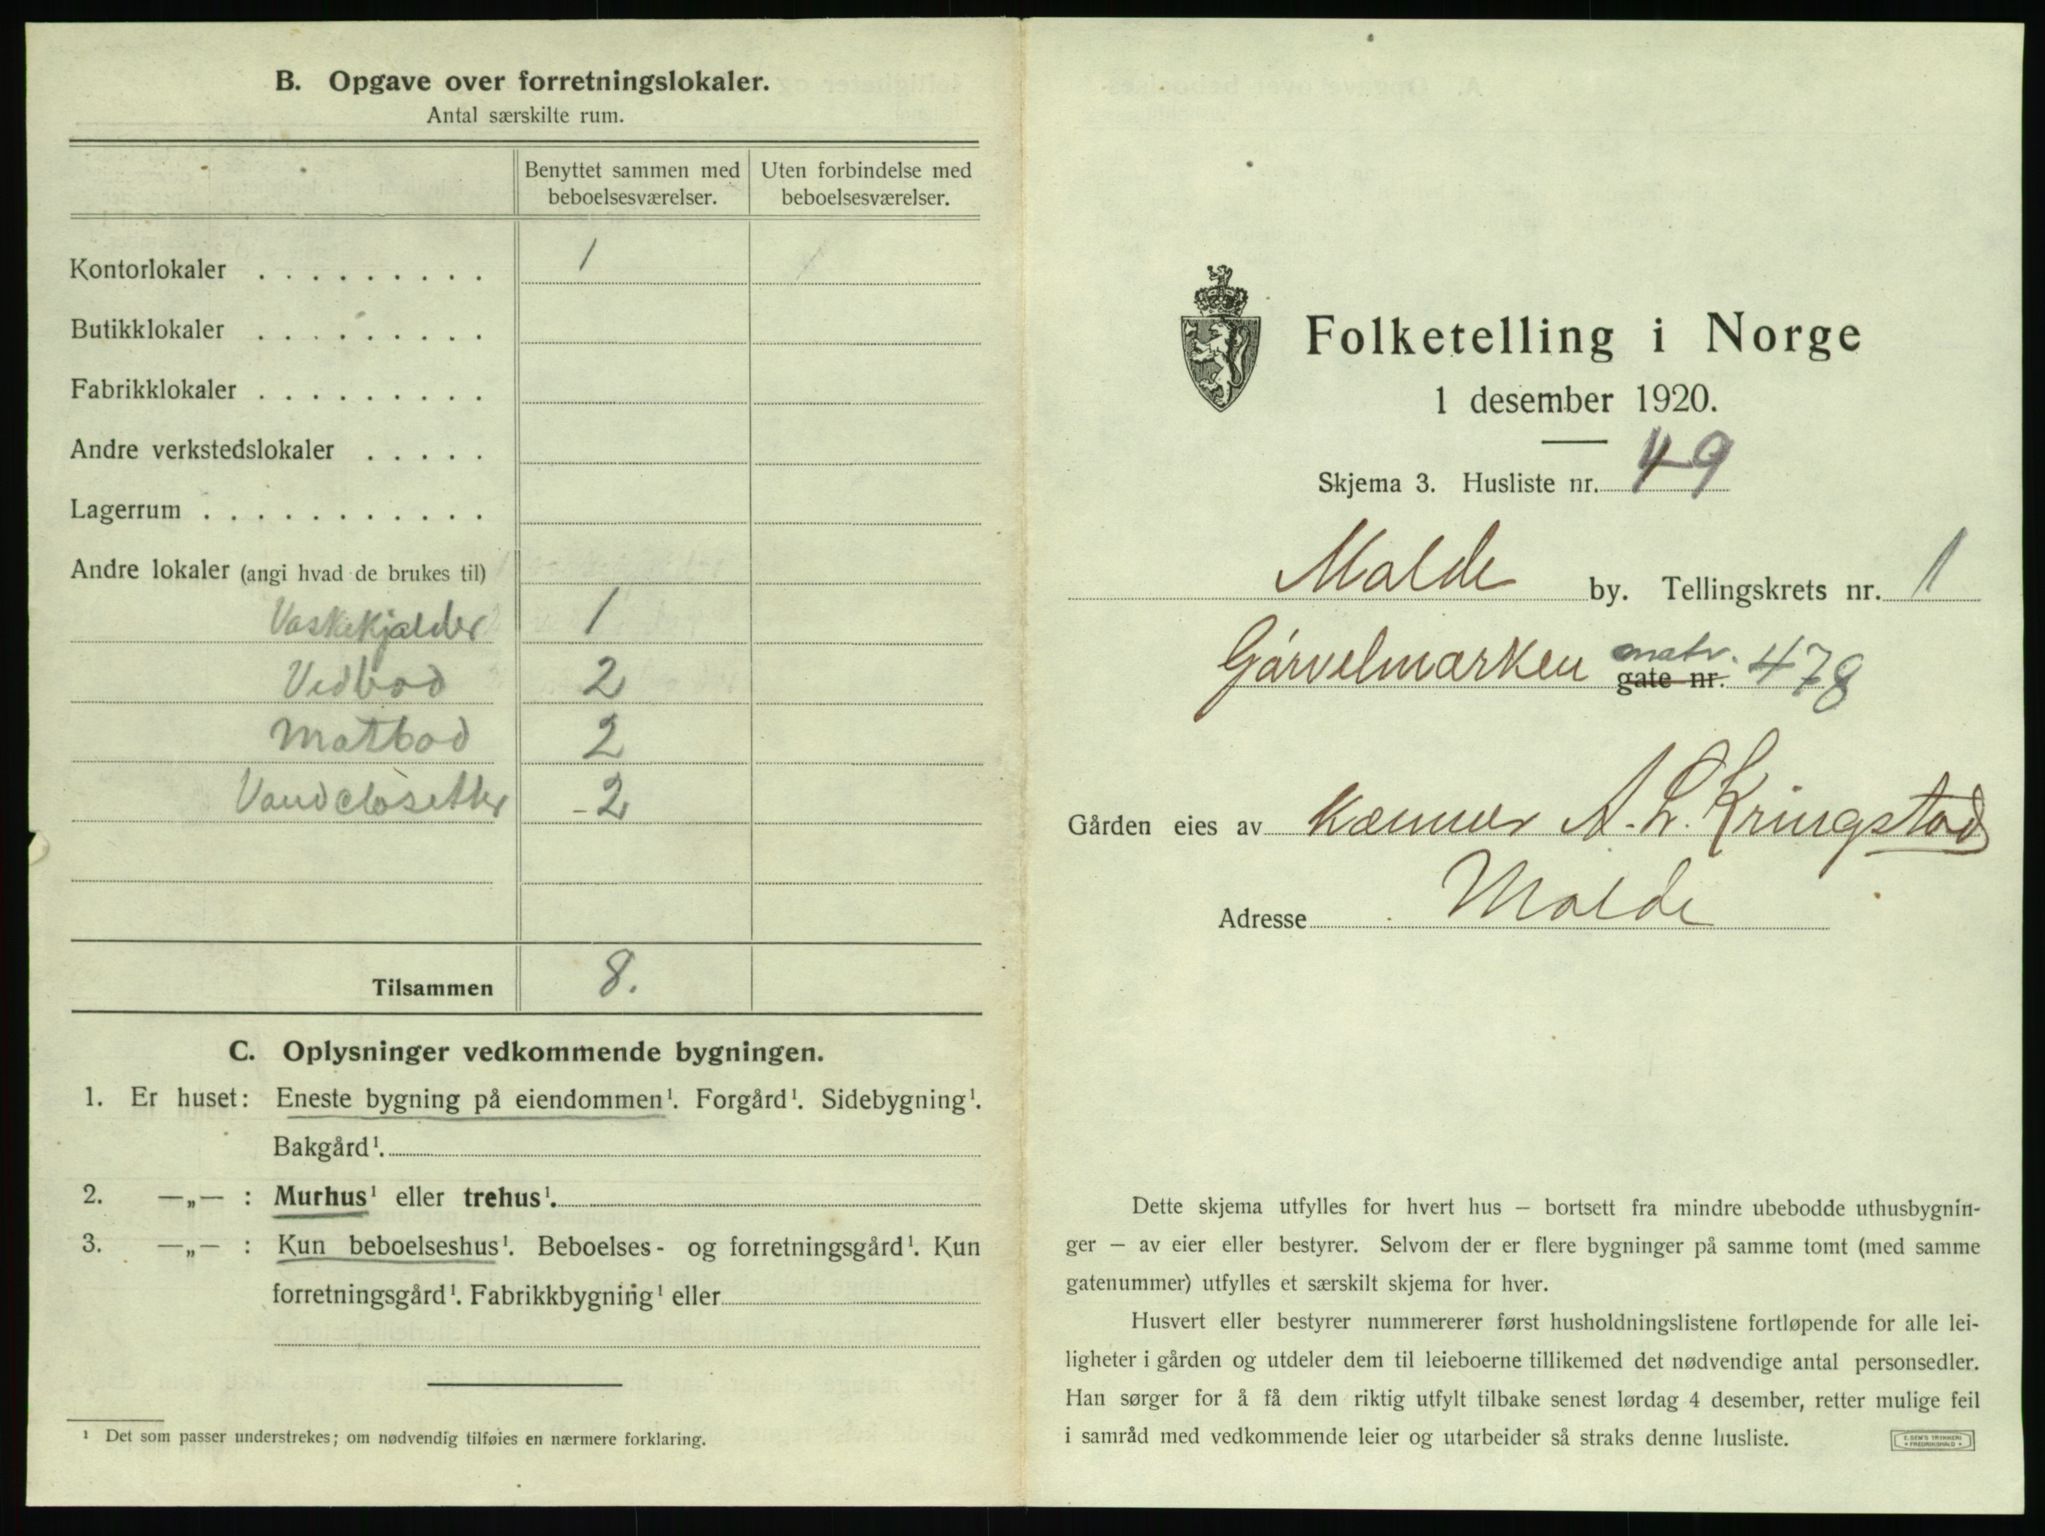 B. Opgave over forretningslokaler.
Antal særskilte rum.
Benyttet sammen med beboelsesværelser.
Uten forbindelse med beboelsesværelser.
Kontorlokaler . . . . . . . . . 1
Butikklokaler . . . . . . . . .
Fabrikklokaler . . . . . . . . .
Andre verkstedslokaler . . . . .
Lagerrum . . . . . . . . . . .
Andre lokaler (angi hvad de brukes til)
Vaskekjælder 1
Vedbod 2
Matbod 2
Vandclosetter - 2
Tilsammen 8.
C. Oplysninger vedkommende bygningen.
1. Er huset: Eneste bygning på eiendommen¹. Forgård¹. Sidebygning¹.
Bakgård¹.
2. —„— : Murhus¹ eller trehus¹.
3. —„— : Kun beboelseshus¹. Beboelses- og forretningsgård¹. Kun
forretningsgård¹. Fabrikkbygning¹ eller
¹ Det som passer understrekes; om nødvendig tilføies en nærmere forklaring.
Folketelling i Norge
1 desember 1920.
Skjema 3. Husliste nr. 49
Molde by. Tellingskrets nr. 1
Gørvelmarken matr. gate nr. 478
Gården eies av kæmner A. L. Kringstad
Adresse Molde
Dette skjema utfylles for hvert hus – bortsett fra mindre ubebodde uthusbygnin-
ger – av eier eller bestyrer. Selvom der er flere bygninger på samme tomt (med samme
gatenummer) utfylles et særskilt skjema for hver.
Husvert eller bestyrer nummererer først husholdningslistene fortløpende for alle lei-
ligheter i gården og utdeler dem til leieboerne tillikemed det nødvendige antal personsedler.
Han sørger for å få dem riktig utfylt tilbake senest lørdag 4 desember, retter mulige feil
i samråd med vedkommende leier og utarbeider så straks denne husliste.